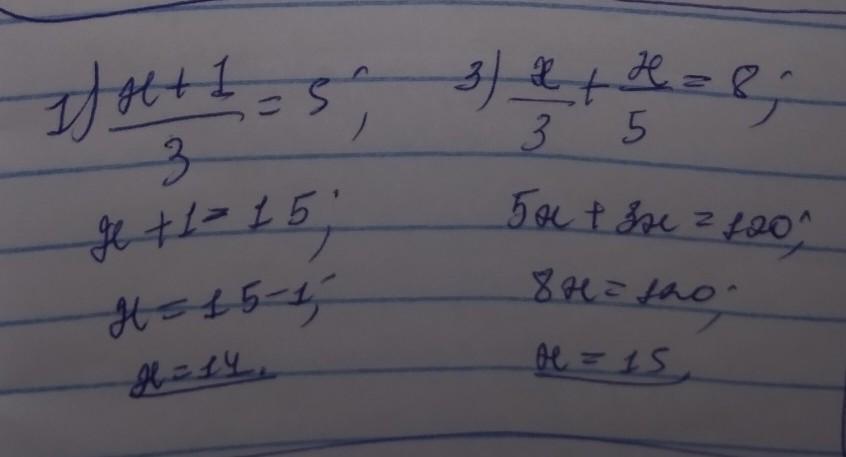 1) x+1/3 = 5;
x+1=15;
x=15-1;
x=14.
3) x/3 + x/5 = 8;
5x+3x=120;
8x=120;
x=15.